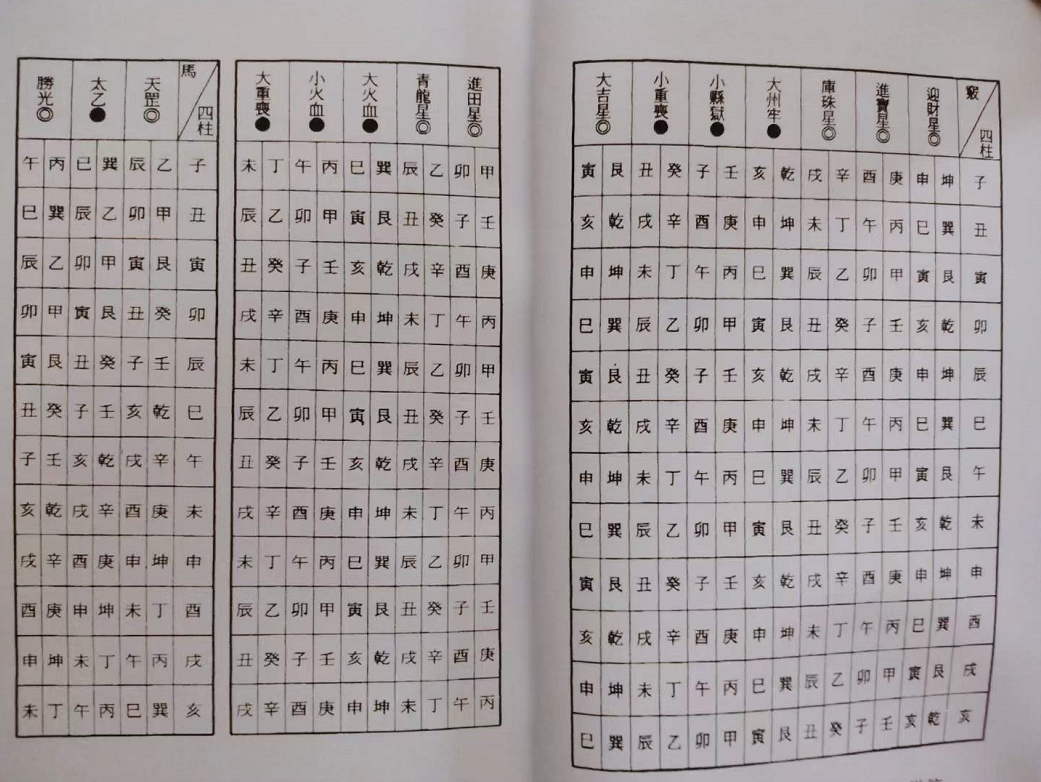 竅 四柱 迎財星◎ 進寶星◎ 庫珠星◎ 大州牢● 小縣獄● 小重喪● 大吉星◎
子 坤 申 庚 酉 辛 戌 乾 亥 壬 子 癸 丑 艮 寅
丑 巽 巳 丙 午 丁 未 坤 申 庚 酉 辛 戌 乾 亥
寅 艮 寅 甲 卯 乙 辰 巽 巳 丙 午 丁 未 坤 申
卯 乾 亥 壬 子 癸 丑 艮 寅 甲 卯 乙 辰 巽 巳
辰 坤 申 庚 酉 辛 戌 乾 亥 壬 子 癸 丑 艮 寅
巳 巽 巳 丙 午 丁 未 坤 申 庚 酉 辛 戌 乾 亥
午 艮 寅 甲 卯 乙 辰 巽 巳 丙 午 丁 未 坤 申
未 乾 亥 壬 子 癸 丑 艮 寅 甲 卯 乙 辰 巽 巳
申 坤 申 庚 酉 辛 戌 乾 亥 壬 子 癸 丑 艮 寅
酉 巽 巳 丙 午 丁 未 坤 申 庚 酉 辛 戌 乾 亥
戌 艮 寅 甲 卯 乙 辰 巽 巳 丙 午 丁 未 坤 申
亥 乾 亥 壬 子 癸 丑 艮 寅 甲 卯 乙 辰 巽 巳
進田星◎ 青龍星◎ 大火血● 小火血● 大重喪●
甲 卯 乙 辰 巽 巳 丙 午 丁 未
壬 子 癸 丑 艮 寅 甲 卯 乙 辰
庚 酉 辛 戌 乾 亥 壬 子 癸 丑
丙 午 丁 未 坤 申 庚 酉 辛 戌
甲 卯 乙 辰 巽 巳 丙 午 丁 未
壬 子 癸 丑 艮 寅 甲 卯 乙 辰
庚 酉 辛 戌 乾 亥 壬 子 癸 丑
丙 午 丁 未 坤 申 庚 酉 辛 戌
甲 卯 乙 辰 巽 巳 丙 午 丁 未
壬 子 癸 丑 艮 寅 甲 卯 乙 辰
庚 酉 辛 戌 乾 亥 壬 子 癸 丑
丙 午 丁 未 坤 申 庚 酉 辛 戌
馬 四柱 天罡◎ 太乙● 勝光◎
子 乙 辰 巽 巳 丙 午
丑 甲 卯 乙 辰 巽 巳
寅 艮 寅 甲 卯 乙 辰
卯 癸 丑 艮 寅 甲 卯
辰 壬 子 癸 丑 艮 寅
巳 乾 亥 壬 子 癸 丑
午 辛 戌 乾 亥 壬 子
未 庚 酉 辛 戌 乾 亥
申 坤 申 庚 酉 辛 戌
酉 丁 未 坤 申 庚 酉
戌 丙 午 丁 未 坤 申
亥 巽 巳 丙 午 丁 未